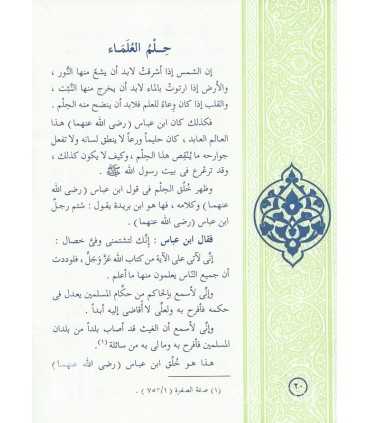 حِلْمُ العُلَمَاء
إن الشمس إذا أشرقتْ لابد أن يشعّ منها النُّور ،
والأرض إذا ارتوتْ بالماء لابد أن يخرج منها النَّبْت ،
والقلب إذا كان وعاءً للعلم فلابد أن ينضح منه الحِلْم .
فكذلك كان ابن عباس (رضى الله عنهما) هذا
العالم العابد ، كان حليماً ورعاً لا ينطق لسانه ولا تفعل
جوارحه ما يُنْقِص هذا الحِلْم ، وكيف لا يكون كذلك ،
وقد ترعرع فى بيت رسول الله ﷺ .
وظهر خُلُق الحِلْم فى قول ابن عباس (رضى الله
عنهما) وكلامه ، فها هو ابن بريدة يقول : شتم رجلٌ
ابن عباس (رضى الله عنهما) .
فقال ابن عباس : إنَّك لتشتمنى وفىَّ خصال :
إنِّى لآتى على الآية من كتاب الله عَزَّ وَجَلَّ ، فلوددتُ
أن جميع النَّاس يعلمون منها ما أعلم .
وإنِّى لأسمع بالحاكم من حكَّام المسلمين يعدل فى
حكمه فأفرح به ولعلِّى لا أُقاضى إليه أبداً .
وإنِّى لأسمع أن الغيث قد أصاب بلداً من بلدان
المسلمين فأفرح به ومالى به من سائلة (١).
هذا هو خُلُق ابن عباس (رضى الله عنهما)
(١) صفة الصفوة (٧٥٣/١) .
٢٠